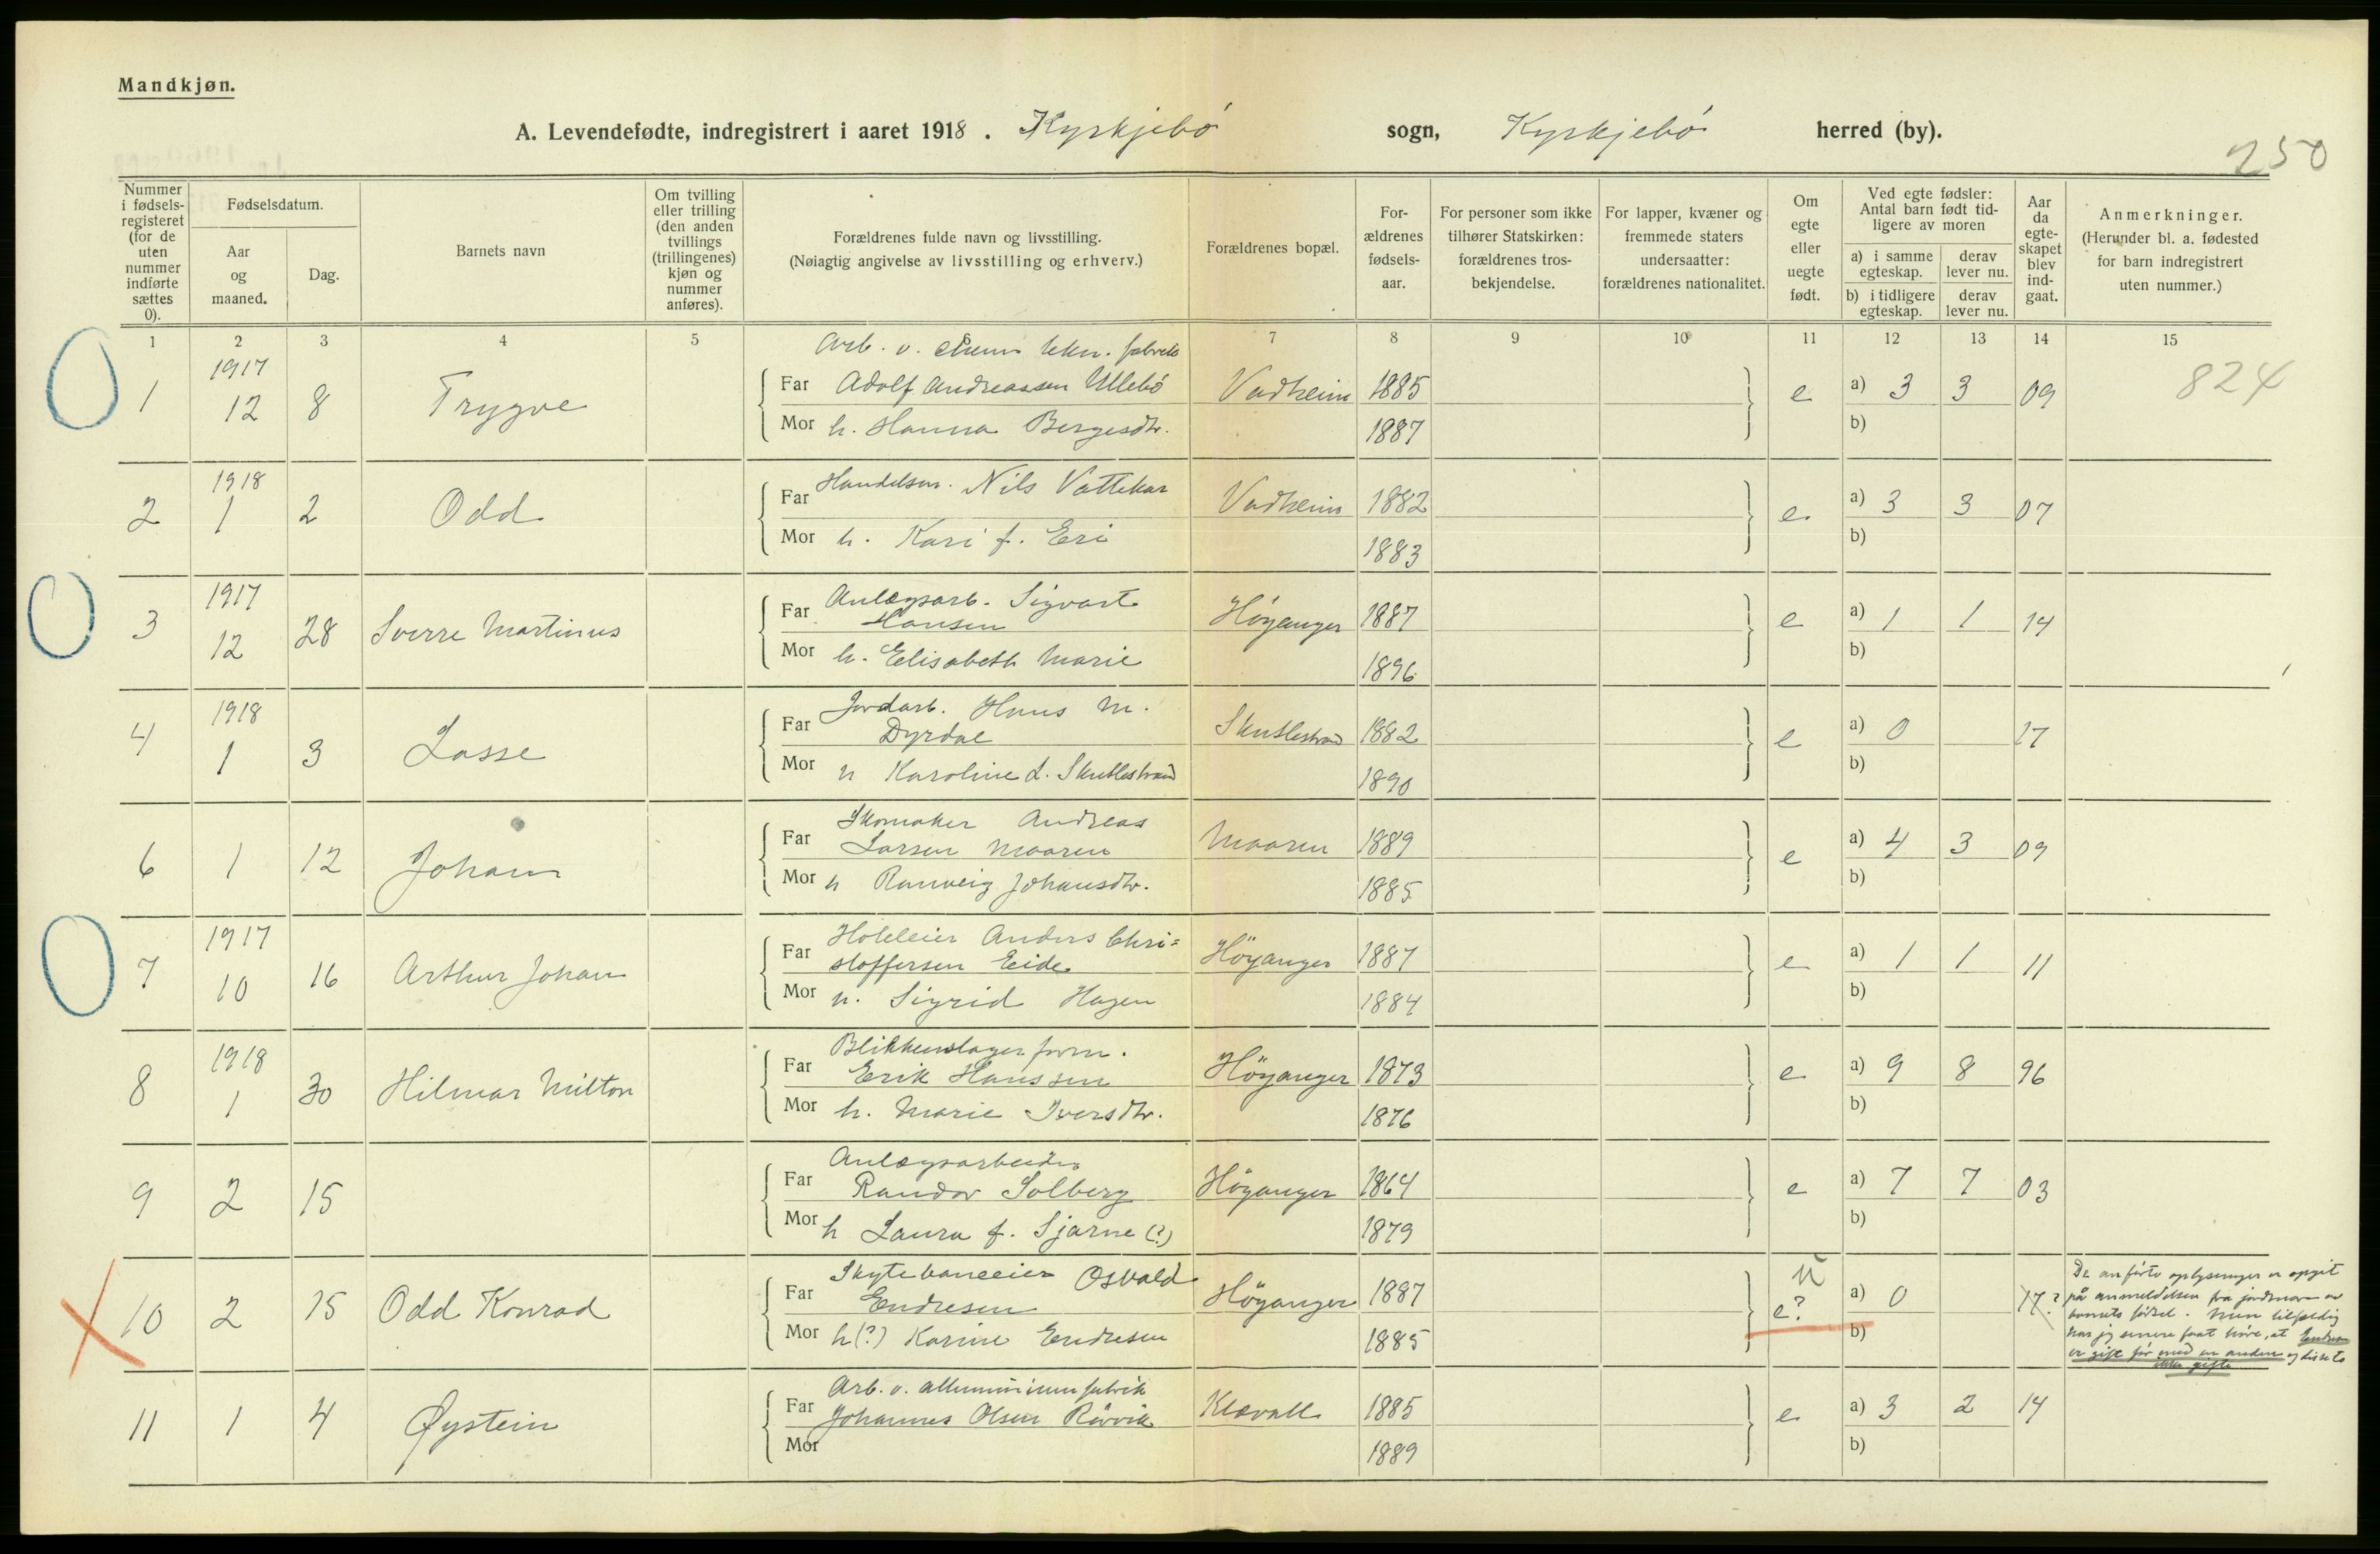 Mandkjøn.
A. Levendefødte, indregistrert i aaret 1918. Kyrkjebö sogn, Kyrkjebö herred (by).
250
Nummer i fødsels-registeret (for de uten nummer indførte sættes 0).
Fødselsdatum.
Aar og maaned.
Dag.
Barnets navn
Om tvilling eller trilling (den anden tvillings (trillingenes) kjøn og nummer anføres).
Forældrenes fulde navn og livsstilling.
(Nøiagtig angivelse av livsstilling og erhverv.)
Forældrenes bopæl.
For-ældrenes fødsels-aar.
For personer som ikke tilhører Statskirken: forældrenes tros-bekjendelse.
For lapper, kvæner og fremmede staters undersaatter: forældrenes nationalitet.
Om egte eller uegte født.
Ved egte fødsler: Antal barn født tid-ligere av moren
a) i samme egteskap.
derav lever nu.
b) i tidligere egteskap.
derav lever nu.
Aar da egte-skapet blev ind-gaat.
Anmerkninger.
(Herunder bl. a. fødested for barn indregistrert uten nummer.)
1 2 3 4 5 7 8 9 10 11 12 13 14 15
1917 Arb. v. chem. tekn. fabrik
1 12 8 Trygve Far Adolf Andreassen Ullebö Vadheim 1885 e a) 3 3 09 824
Mor h. Hanna Bergesdtr. 1887 b)
1918
2 1 2 Odd Far Handelsm. Nils Vattekar Vadheim 1882 e a) 3 3 07
Mor h. Kari f. Eri 1883 b)
1917 Anlægsarb. Sigvart
3 12 28 Sverre Martinus Far Hansen Höyanger 1887 e a) 1 1 14
Mor h. Elisabeth Marie 1896 b)
1918 Jordarb. Hans M.
4 1 3 Lasse Far Dyrdal Skutlestrand 1882 e a) 0 17
Mor h Karoline L. Skutlestrand 1890 b)
Skomaker Andreas
6 1 12 Johan Far Larsen Maaren Maaren 1889 e a) 4 3 09
Mor h Ranveig Johansdtr. 1885 b)
1917 Hoteleier Anders Chri=
7 10 16 Arthur Johan Far stoffersen Eide Höyanger 1887 e a) 1 1 11
Mor h. Sigrid Hagen 1884 b)
1918 Blikkenslagerform.
8 1 30 Hilmar Milton Far Erik Hanssen Höyanger 1873 e a) 9 8 96
Mor h. Marie Iversdtr. 1876 b)
Anlægsarbeider
9 2 15 Far Randor Solberg Höyanger 1864 e a) 7 7 03
Mor h Laura f. Sjarne (?) 1879 b)
Skytebaneeier Osvald
10 2 15 Odd Konrad Far Endresen Höyanger 1887 u e? a) 0 17?
Mor h(?) Karine Endresen 1885 b)
De anförte oplysninger er opgit
på anmeldelsen fra jordmoren om
barnets födsel. Men tilfældig
har jeg senere faat höre, at Endresen
er gift før med en anden og disse to
ikke gifte
Arb. v. alluminiumfabrik
11 1 4 Øystein Far Johannes Olsen Rörvik Klævoll 1885 e a) 3 2 14
Mor 1889 b)